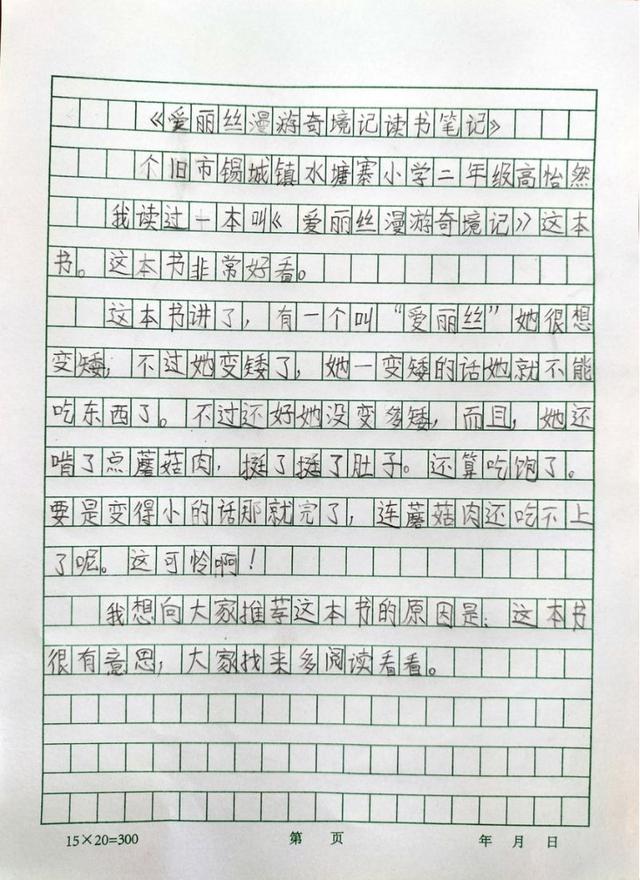 《爱丽丝漫游奇境记读书笔记》
个旧市锡城镇水塘寨小学二年级高怡然
我读过一本叫《爱丽丝漫游奇境记》这本
书。这本书非常好看。
这本书讲了，有一个叫“爱丽丝”她很想
变矮，不过她变矮了，她一变矮的话她就不能
吃东西了。不过还好她没变多矮，而且，她还
啃了点蘑菇肉，挺了挺了肚子。还算吃饱了。
要是变得小的话那就完了，连蘑菇肉还吃不上
了呢。这可怜啊！
我想向大家推荐这本书的原因是：这本书
很有意思，大家找来多阅读看看。
15×20=300 第 页 年 月 日